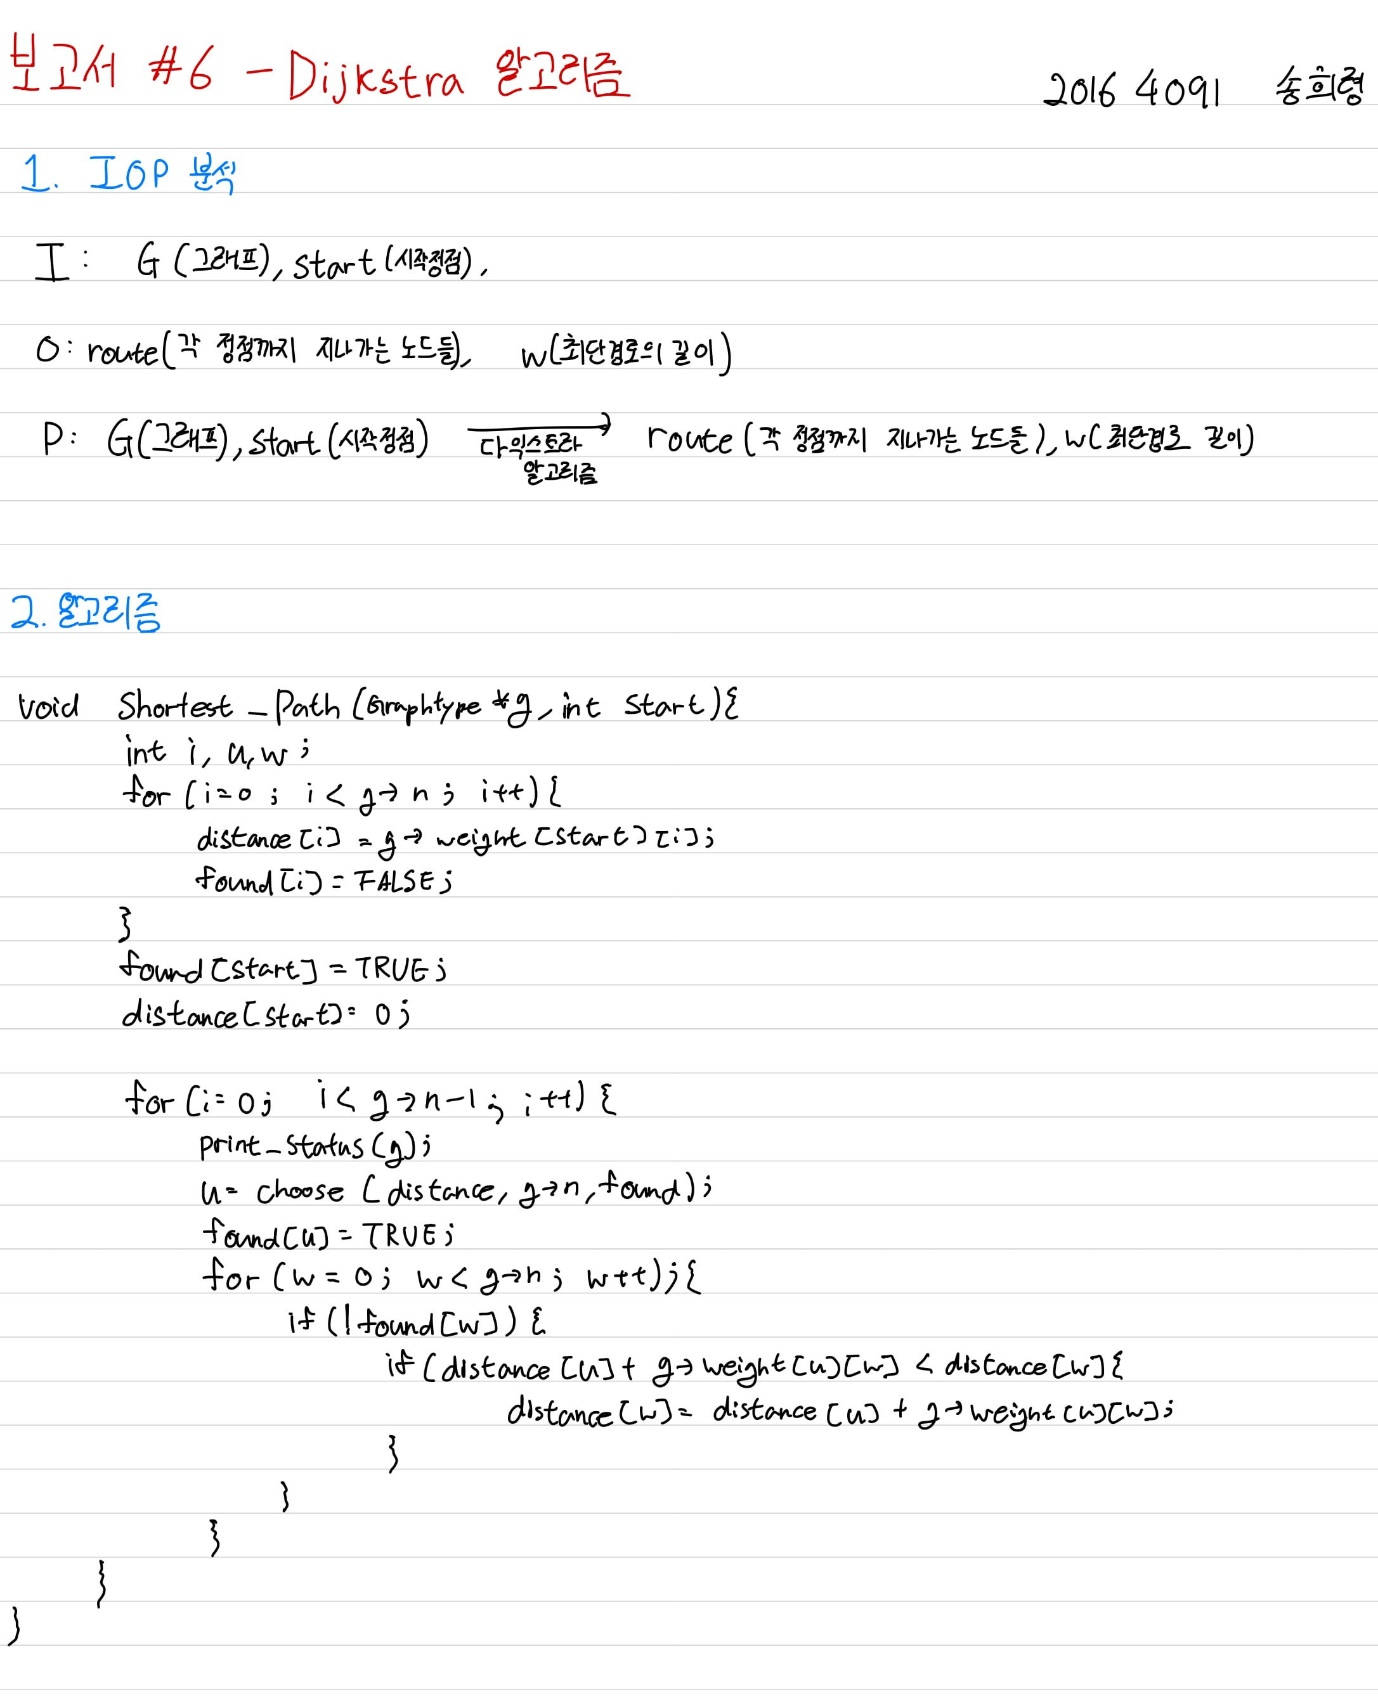 보고서 #6 - Dijkstra 알고리즘
2016 4091 송희령
1. IOP 분석
I : G (그래프), start (시작정점),
O : route( 각 정점까지 지나가는 노드들), w(최단경로의 길이)
P : G(그래프), start (시작정점) → route ( 각 정점까지 지나가는 노드들 ), w( 최단경로 길이)
다익스트라
알고리즘
2. 알고리즘
void Shortest_Path (Graphtype *g, int start){
int i, u, w ;
for (i=0 ; i < g→n ; i++) {
distance [i] = g→weight [start] [i] ;
found [i] = FALSE ;
}
found [start] = TRUE ;
distance [start] = 0 ;
for (i = 0 ; i < g→n-1 ; i++) {
print_status (g) ;
u = choose ( distance, g→n, found) ;
found [u] = TRUE ;
for (w = 0 ; w < g→n ; w++) ; {
if (!found [w]) {
if (distance [u] + g→weight [u] [w] < distance [w] {
distance [w] = distance [u] + g→weight [u] [w] ;
}
}
}
}
}